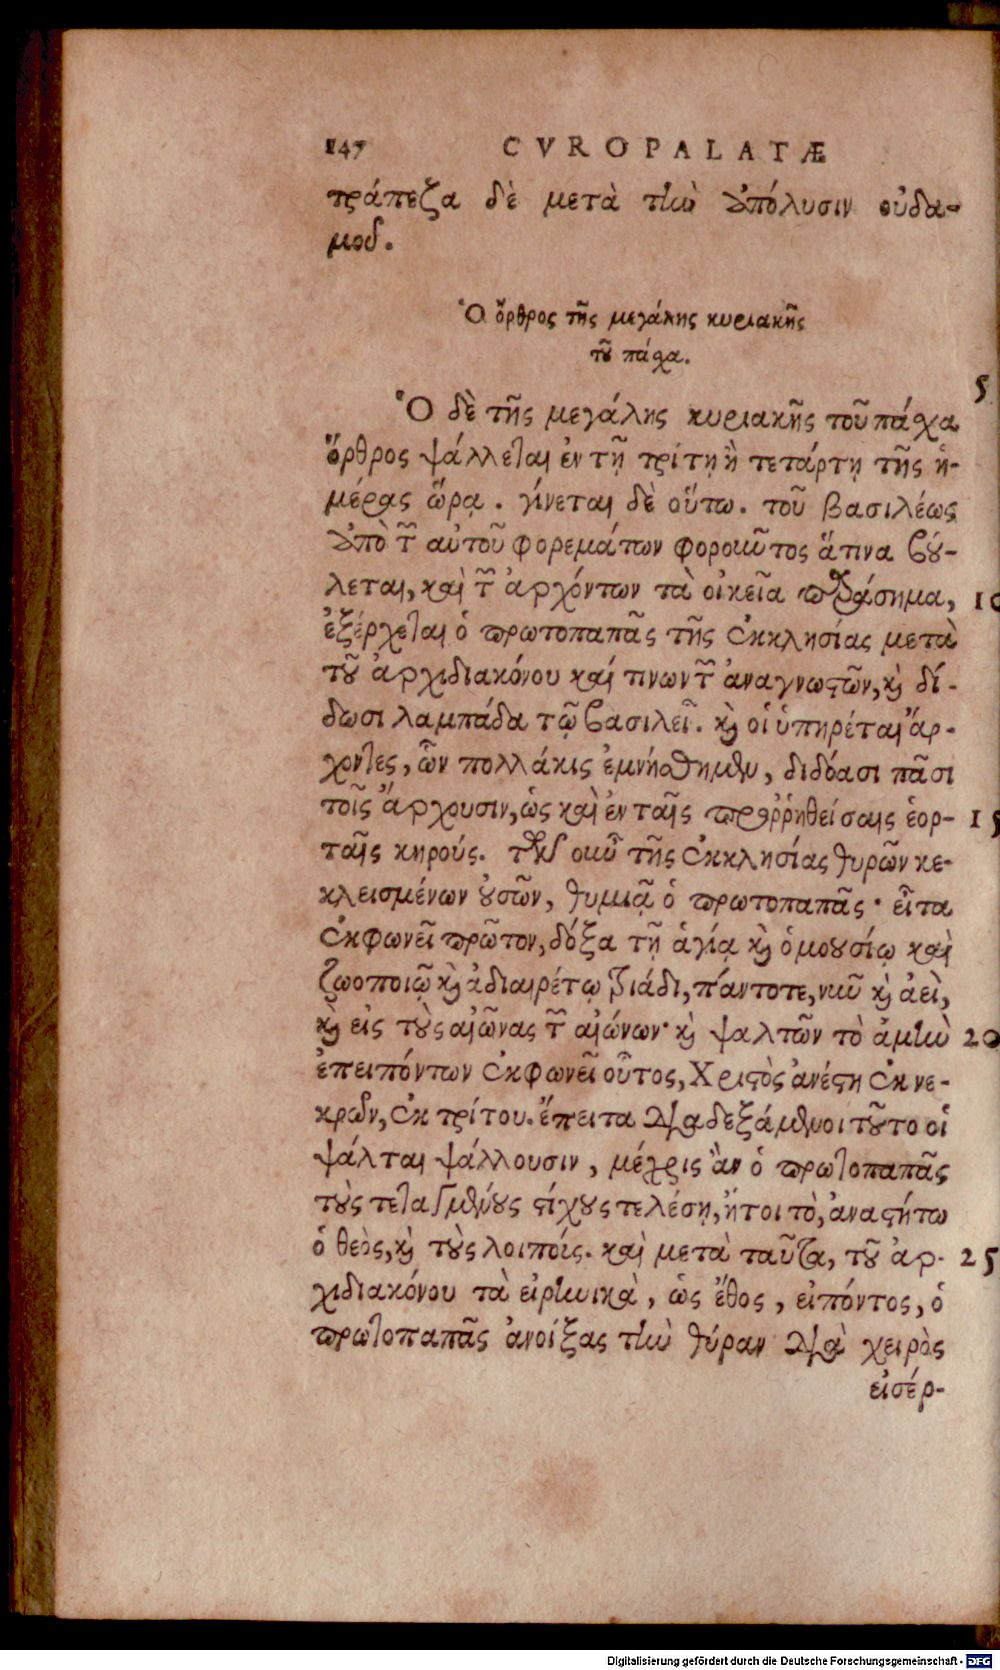 147 CVROPALATÆ
τράπεζα δὲ μετὰ τὴν ἀπόλυσιν οὐδα-
μοῦ.
Ὁ ὄρθρος τῆς μεγάλης κυριακῆς
τοῦ πάσχα.
5
Ὁ δὲ τῆς μεγάλης κυριακῆς τοῦ πάσχα
ὄρθρος ψάλλεται ἐν τῇ τρίτῃ ἢ τετάρτῃ τῆς ἡ-
μέρας ὥρᾳ. γίνεται δὲ οὕτω. τοῦ βασιλέως
ἀπὸ τῶν αὐτοῦ φορεμάτων φοροῦντος ἅτινα βού-
λεται, καὶ τῶν ἀρχόντων τὰ οἰκεῖα παράσημα, 10
ἐξέρχεται ὁ πρωτοπαπᾶς τῆς ἐκκλησίας μετὰ
τοῦ ἀρχιδιακόνου καί τινων τῶν ἀναγνωστῶν, καὶ δί-
δωσι λαμπάδα τῷ βασιλεῖ. καὶ οἱ ὑπηρέται ἄρ-
χοντες, ὧν πολλάκις ἐμνήσθημεν, διδόασι πᾶσι
τοῖς ἄρχουσιν, ὡς καὶ ἐν ταῖς προῤῥηθείσαις ἑορ- 15
ταῖς κηρούς. τῶν οὖν τῆς ἐκκλησίας θυρῶν κε-
κλεισμένων οὐσῶν, θυμιᾷ ὁ πρωτοπαπᾶς· εἶτα
ἐκφωνεῖ πρῶτον, δόξα τῇ ἁγίᾳ καὶ ὁμοουσίῳ καὶ
ζωοποιῷ καὶ ἀδιαιρέτῳ τριάδι, πάντοτε, νῦν καὶ ἀεὶ,
καὶ εἰς τοὺς αἰῶνας τῶν αἰώνων· καὶ ψαλτῶν τὸ ἀμὴν 20
ἐπειπόντων ἐκφωνεῖ οὗτος, Χριστὸς ἀνέστη ἐκ νε-
κρῶν, ἐκ τρίτου. ἔπειτα διαδεξάμενοι τοῦτο οἱ
ψάλται ψάλλουσιν, μέχρις ἂν ὁ πρωτοπαπᾶς
τοὺς τεταγμένους στίχους τελέσῃ, ἤτοι τὸ, ἀναστήτω
ὁ θεὸς, καὶ τοὺς λοιπούς. καὶ μετὰ ταῦτα, τοῦ ἀρ- 25
χιδιακόνου τὰ εἰρηνικὰ, ὡς ἔθος, εἰπόντος, ὁ
πρωτοπαπᾶς ἀνοίξας τὴν θύραν διὰ χειρὸς
εἰσέρ-
Digitalisierung gefördert durch die Deutsche Forschungsgemeinschaft - DFG